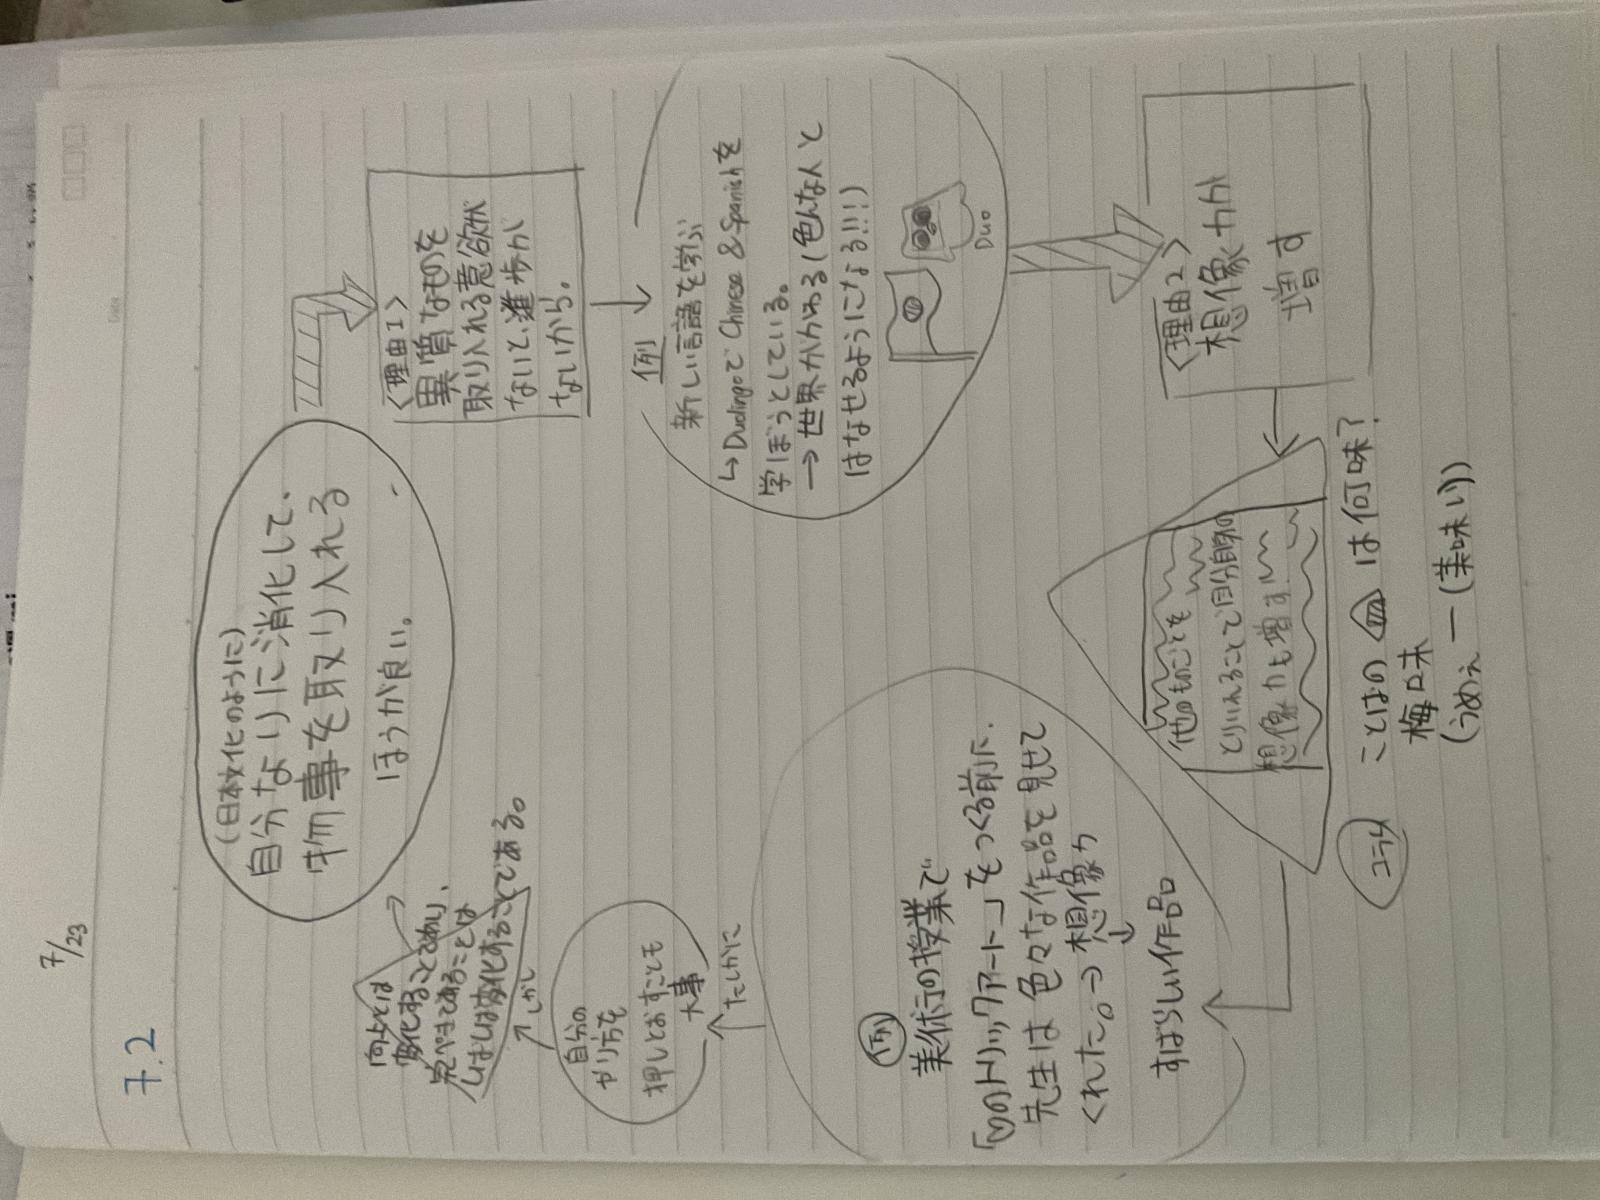 7/23
7.2
(日本文化のように)
自分なりに消化して、
物事を取り入れる
ほうが良い。
<理由1>
異質なものを
取り入れる意欲が
ないと、進歩が
ないから。
例
新しい言語を学ぶ
↳ DuolingoでChinese & Spanishを
学ぼうとしている。
→世界がかわる(色んな人と
はなせるようになる!!!)
Duo
<理由2>
想像力が
増す
他のものごとを
とりいれることで自分自身の
想像力も増す
コラム
ことばの は何味?
梅味
(うめぇー(美味い))
例
美術の授業で
「トリックアート」をつくる前に、
先生は色々な作品を見せて
くれた。→想像力
↓
すばらしい作品
たしかに
自分の
やり方を
押しとおすことも
大事
しかし
向上とは
変化することであり、
完ぺきであることは
しばしば変化することである。